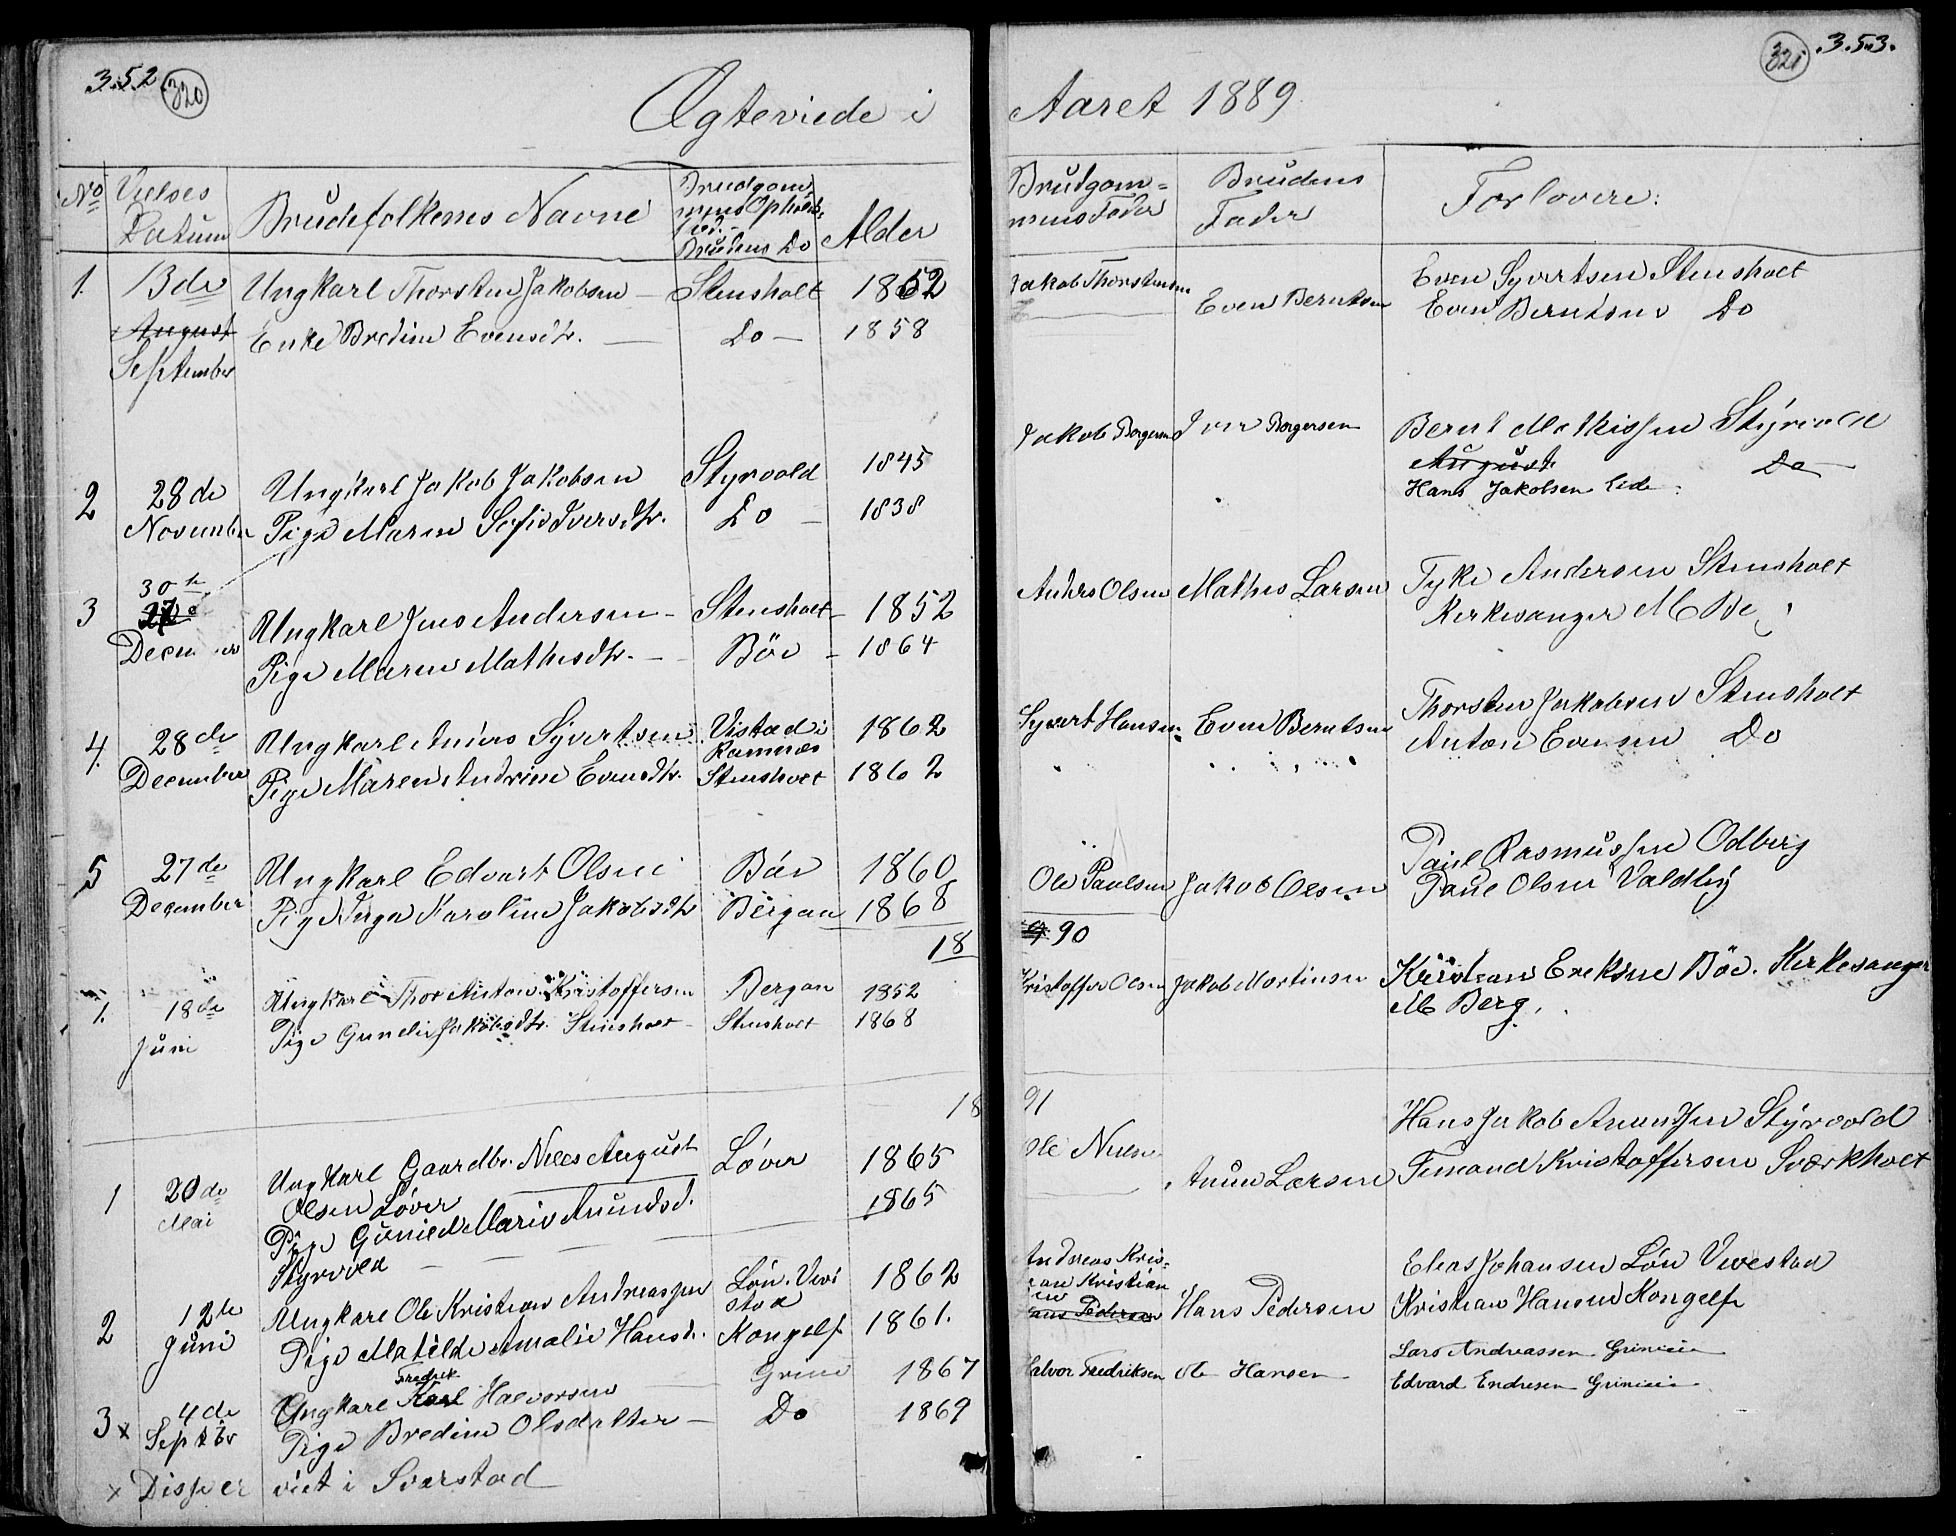 3.52. 320
Ægteviede i
No
Vielses Datum
Brudefolkenes Navne
Brudgommens Opholdssted. Brudens Do
Alder
1. 13de Ungkarl Thorsten Jakobsen — Stensholt 1852
August Enke Bredine Evensdtr. — Do — 1858
September
2 28de Ungkarl Jakob Jakobsen Styrvold 1845
November Pige Maren Sofie Iversdtr. Do — 1838
30te
3 27de Ungkarl Jens Andersen — Stensholt — 1852
December Pige Maren Mathisdtr. — Böe — 1864
4. 28de Ungkarl Anders Syvertsen Vistad i Ramnæs 1862
December Pige Maren Andrine Evensdtr. Stensholt 1862
5 27de Ungkarl Edvart Olsen Böe 1860
December Pige Inga Karoline Jakobsdtr Bergan 1868
18
1. 18de Ungkarl Thor Anton Kristoffersen Bergan 1852
Juni Pige Gunild Jakobsdtr. Stensholt Stensholt 1868
18
1 20de Ungkarl Gaardbr. Niels August Löver 1865
Mai Olsen Löver
Pige Gunild Marie Anundsd. 1865
Styrvold — — —
2 12te Ungkarl Ole Kristian Andreassen Lön. Vivestad 1862
Juni Pige Matilde Amalie Hansd. Kongelf 1861.
Fredrik
3x 4de Ungkarl Karl Halvorsen — Grinu 1867
Septbr Pige Bredine Olsdatter — Do 1869
x Disse er viet i Svarstad
321 .3.53.
Aaret 1889
Brudgommens Fader
Brudens Fader
Forlovere:
Jakob Thorstensen Even Berntsen Even Syvertsen Stensholt
Even Berntsen Do
Jakob Borgersen Iver Borgersen Bernt Mathissen Styrvold
August
Hans Jakobsen Lide. Do
Anders Olsen Mathis Larsen Tyke Andersen Stensholt
Kirkesanger M Be
Syvert Hansen Even Berntsen Thorsten Jakobsen Stensholt
Anton Evensen Do
Ole Paulsen Jakob Olsen Paul Rasmussen Odberg
Paul Olsen Valdby
90
Kristoffer Olsen Jakob Mortinsen Kristian Eriksen Böe. Kirkesanger
M Berg.
91
Ole Nielsen Anun Larsen Hans Jakob Anundsen Styrvold
Temand Kristoffersen Sværkholt
Andreas Kristian Kristiansen
Hans Pedersen Hans Pedersen Elias Johansen Lön Vivestad
Kristian Hansen Kongelf
Halvor Fredriksen Ole Hansen Lars Andreassen
Edvard Endresen